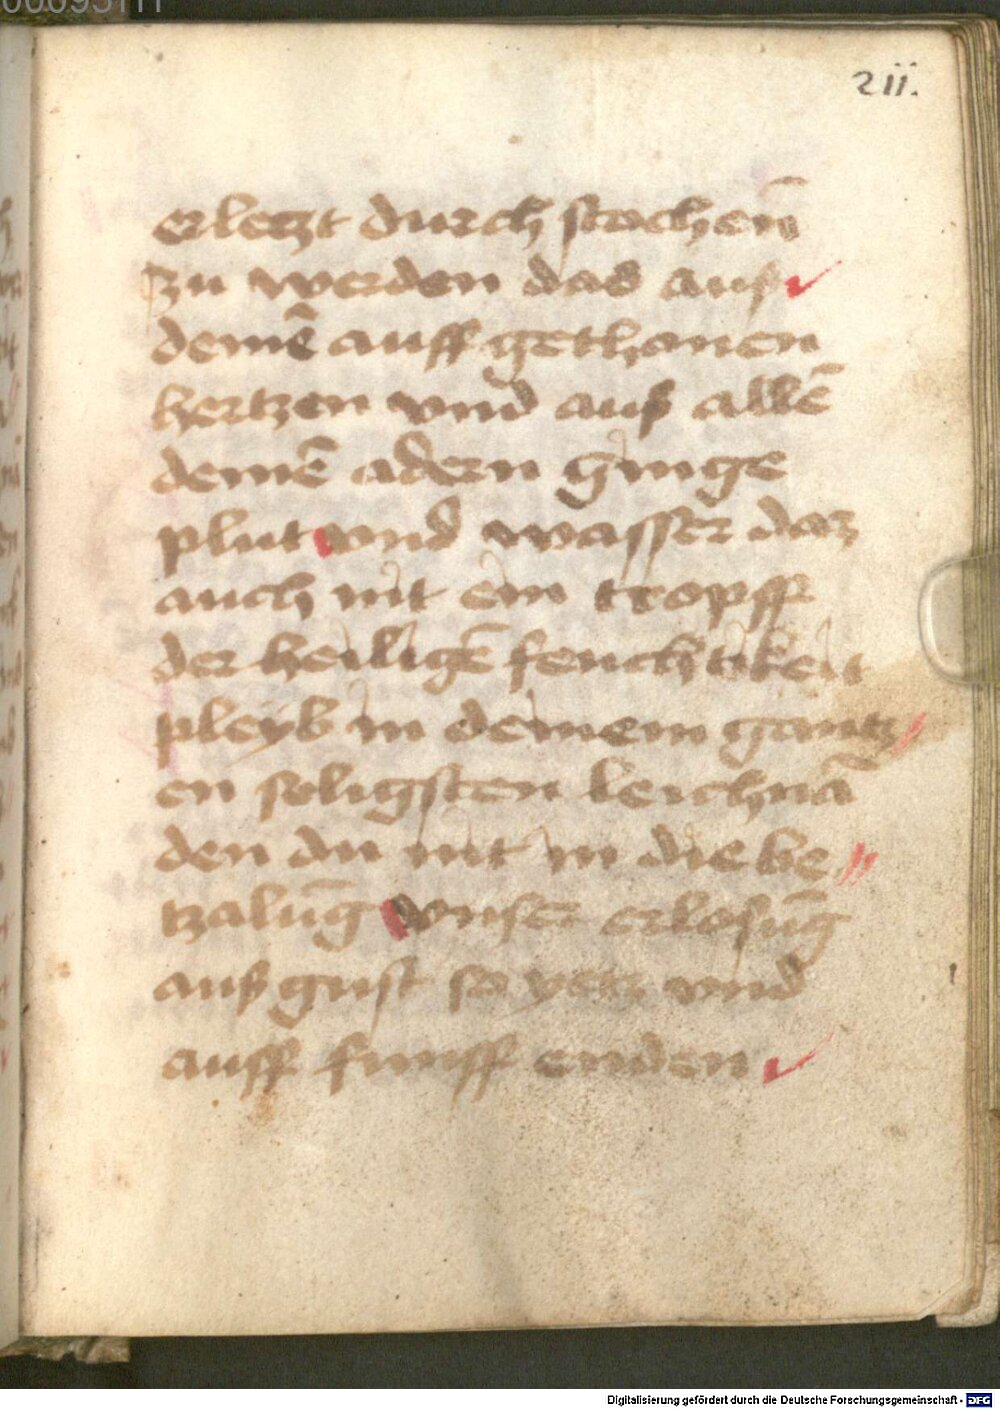 00095111
211.
erletzt durch stochen̄
zu werden das auß
deinē auff gethonen
hertzen vnd auß allē
deinē adern ginge
plut vnd wasser daz
auch nit ein tropff
der heiligē feuchtikeit
pleyb in deinem gantz
en seligsten leichnā
den du nit in die be
tzalūg vnser erlosūg
auß gust so yetz vnd
auff funff enden
Digitalisierung gefördert durch die Deutsche Forschungsgemeinschaft - DFG